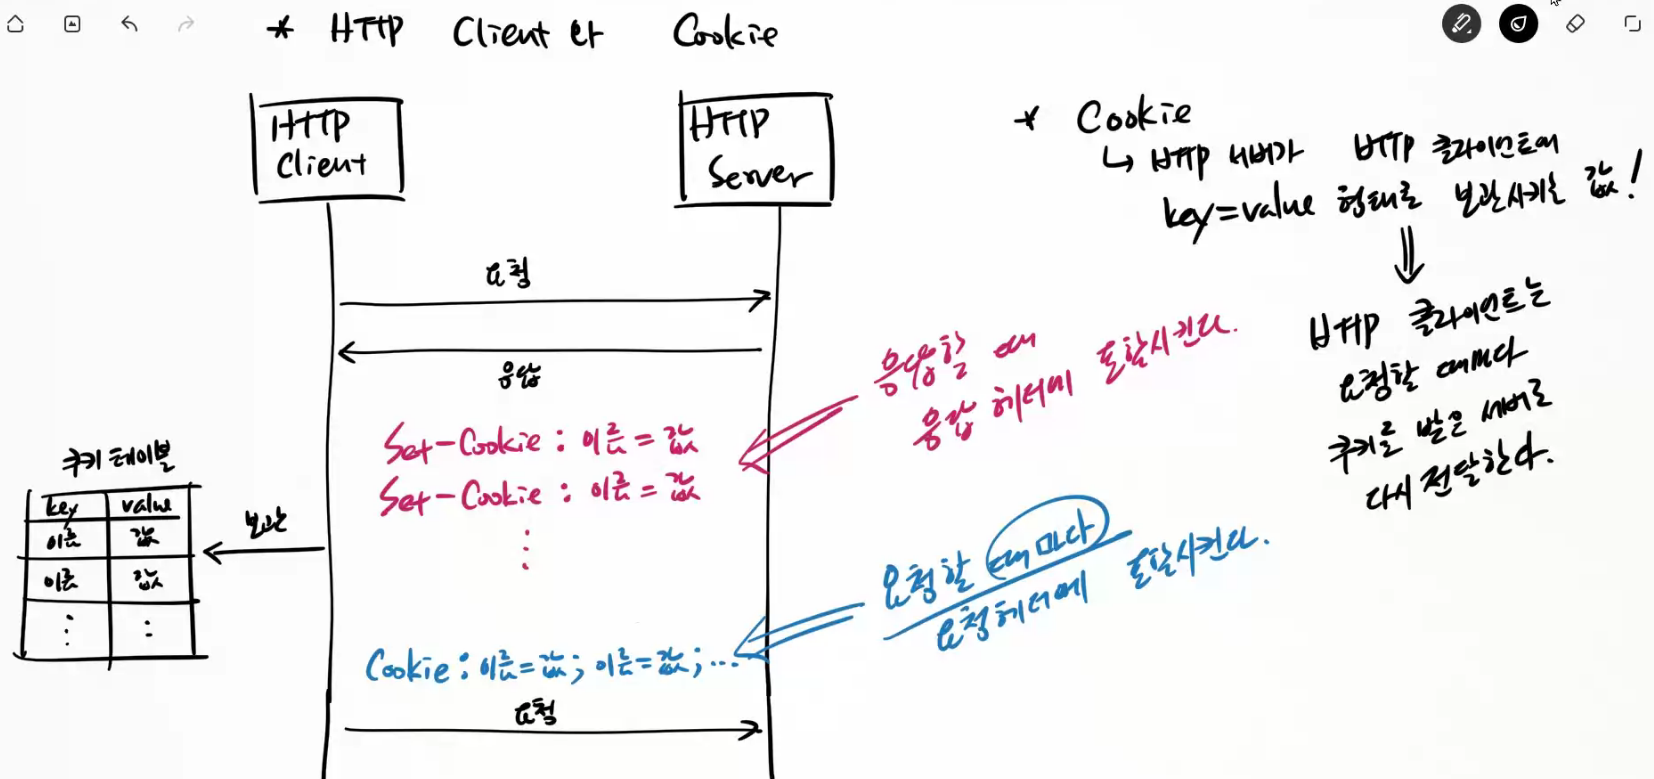 * HTTP Client 와 Cookie
HTTP
Client
HTTP
Server
요청
응답
Set-Cookie : 이름 = 값
Set-Cookie : 이름 = 값
⋮
응답할 때
응답 헤더에 포함시킨다.
쿠키 테이블
key value
이름 값
이름 값
⋮ ⋮
보관
Cookie : 이름=값; 이름=값; ...
요청할 때마다
요청헤더에 포함시킨다.
요청
* Cookie
↳ HTTP 서버가 HTTP 클라이언트에
key=value 형태로 보관시키는 값!
⇓
HTTP 클라이언트는
요청할 때마다
쿠키를 받은 서버로
다시 전달한다.